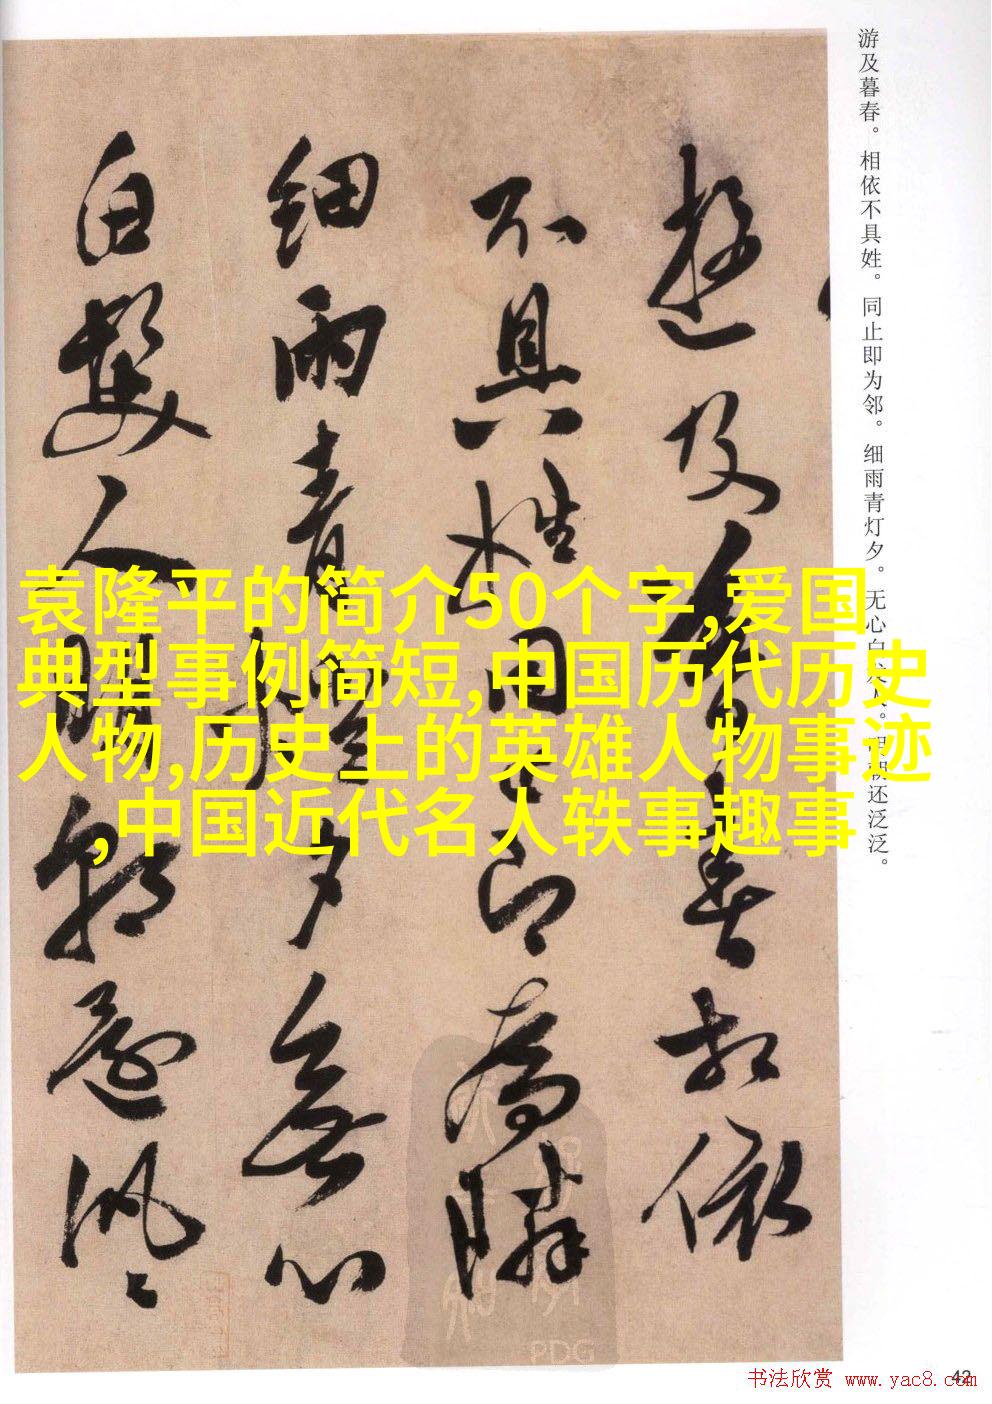 游及暮春。相依不具姓。同止即为邻。细雨青灯夕。无心白发人。明朝还泛泛。
遊及暮春相依
不具姓同止即為隣
細雨青燈夕無心
白髮人明朝還汎〻
袁隆平的简介50个字,爱国
典型事例简短,中国历代历史
人物,历史上的英雄人物事迹
,中国近代名人轶事趣事
PDG
42
书法欣赏 www.yac8.com